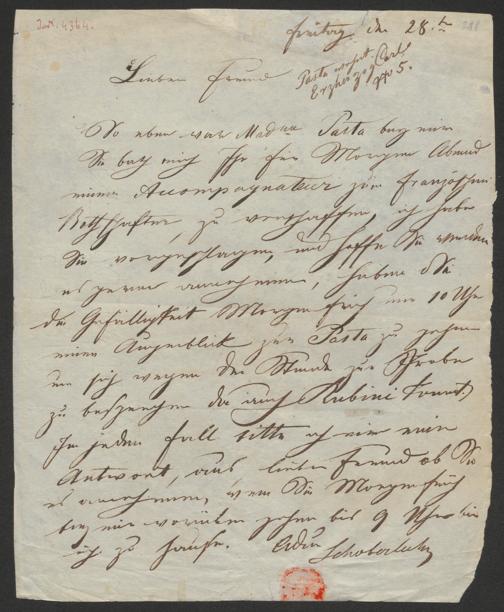 Inv. 4364.
218
Freitag den 28.tn
Lieber Freund
Pasta wohnt
Erzherzog Carl
No 5.
So eben war Madme Pasta bey mir
Sie bath mich Ihr für Morgen Abend
einen Accompagnateur zum französischen
Bothschafter, zu verschaffen, ich habe
Sie vorgeschlagen, und hoffe Sie werden
es gerne annehmen, haben Sie
die Gefälligkeit Morgen früh um 10 Uhr
einen Augenblick zur Pasta zu gehen
um sich wegen der Stunde zur Probe
zu besprechen da auch Rubini kommt.
In jedem Fall bitte ich um eine
Antwort, lieber Freund ob Sie
es annehmen, wenn Sie Morgen früh
bey mir vorüber gehen bis 9 Uhr bin
ich zu Hause. Schoberlechn